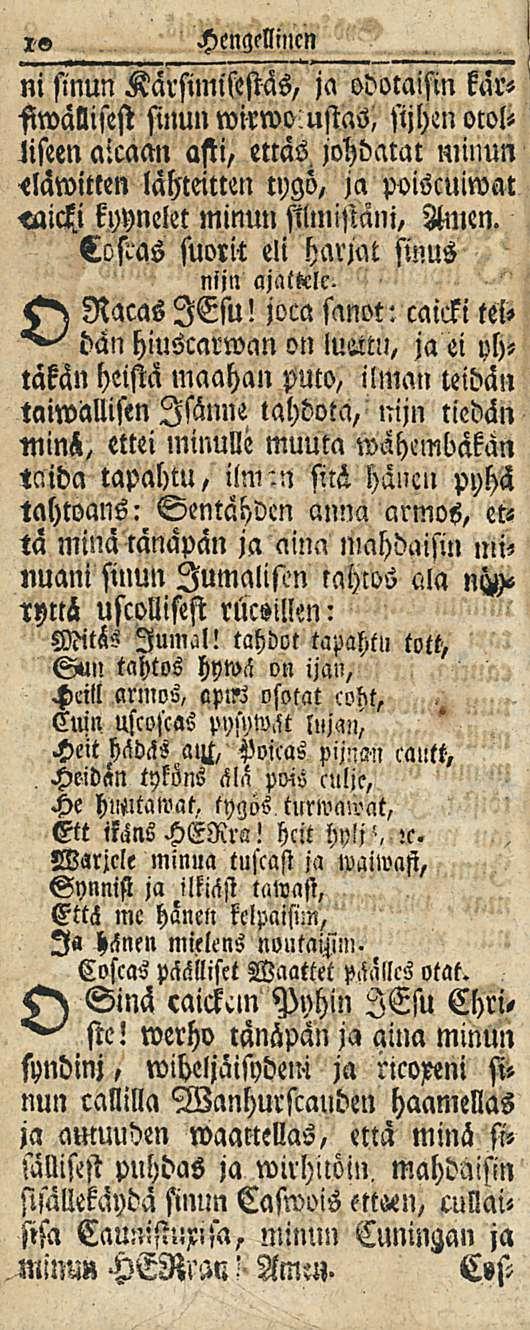 10 Hengellinen
ni sinun Kärsimisestäs, ja odotaisin kär-
siwällisest sinun wirwo:ustas, sijhen otol-
liseen aicaan asti, ettäs johdatat minun
eläwitten lähteitten tygö, ja poiscuiwat
caicki kyynelet minun silmistäni, Amen.
Coscas suorit eli harjat sinus
nijn ajattele.
O Racas JEsu! joca sanot: caicki tei-
dän hiuscarwan on luettu, ja ei yh-
täkän heistä maahan puto, ilman teidän
taiwallisen Isänne tahdota, nijn tiedän
minä, ettei minulle muuta wähembäkän
taida tapahtu, ilman sitä hänen pyhä
tahtoans: Sentähden anna armos, et-
tä minä tänäpän ja aina mahdaisin mi-
nuani sinun Jumalisen tahtos ala nöy-
ryttä uscollisest rucoillen:
Mitäs Jumal! tahdot tapahtu tott,
Sun tahtos hywä on ijan,
Heill armos, apus osotat coht,
Cuin uscoscas pysywät lujan,
Heit hädäs aut, Poicas pijnan cautt,
Heidän tyköns älä pois culje,
He huutawat, tygös turwawat,
Ett ikäns HERra! heit hylj', rc.
Warjele minua tuscast ja waiwast,
Synnist ja ilkiäst tawast,
Että me hänen kelpaisim,
Ja hänen mielens noutaisim.
Coscas päälliset Waattet päälles otat.
O Sinä caickein Pyhin JEsu Chri-
ste! werho tänäpän ja aina minun
syndinj, wiheljäisydeni ja ricoxeni si-
nun callilla Wanhurscauden haamellas
ja autuuden waattellas, että minä si-
sällisest puhdas ja wirhitöin, mahdaisin
sisällekäydä sinun Caswois etteen, cullai-
sisa Caunistuxisa, minun Cuningan ja
minun HERran! Amen. Cos-